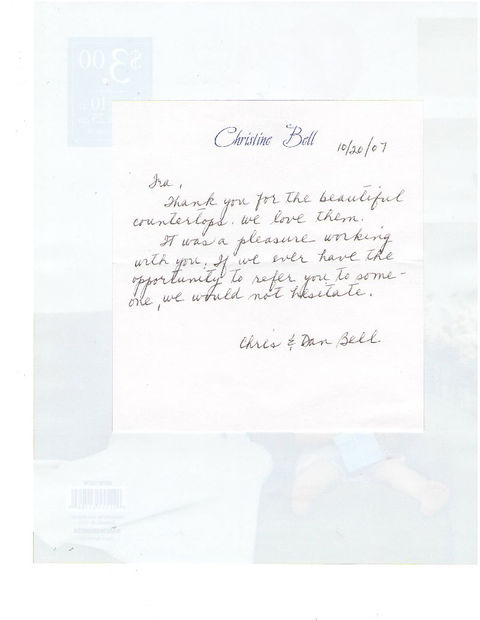 Christine Bell
10/20/07
Ira,
Thank you for the beautiful
countertops. We love them.
It was a pleasure working
with you. If we ever have the
opportunity to refer you to some-
one, we would not hesitate.
Chris & Dan Bell
$3.00